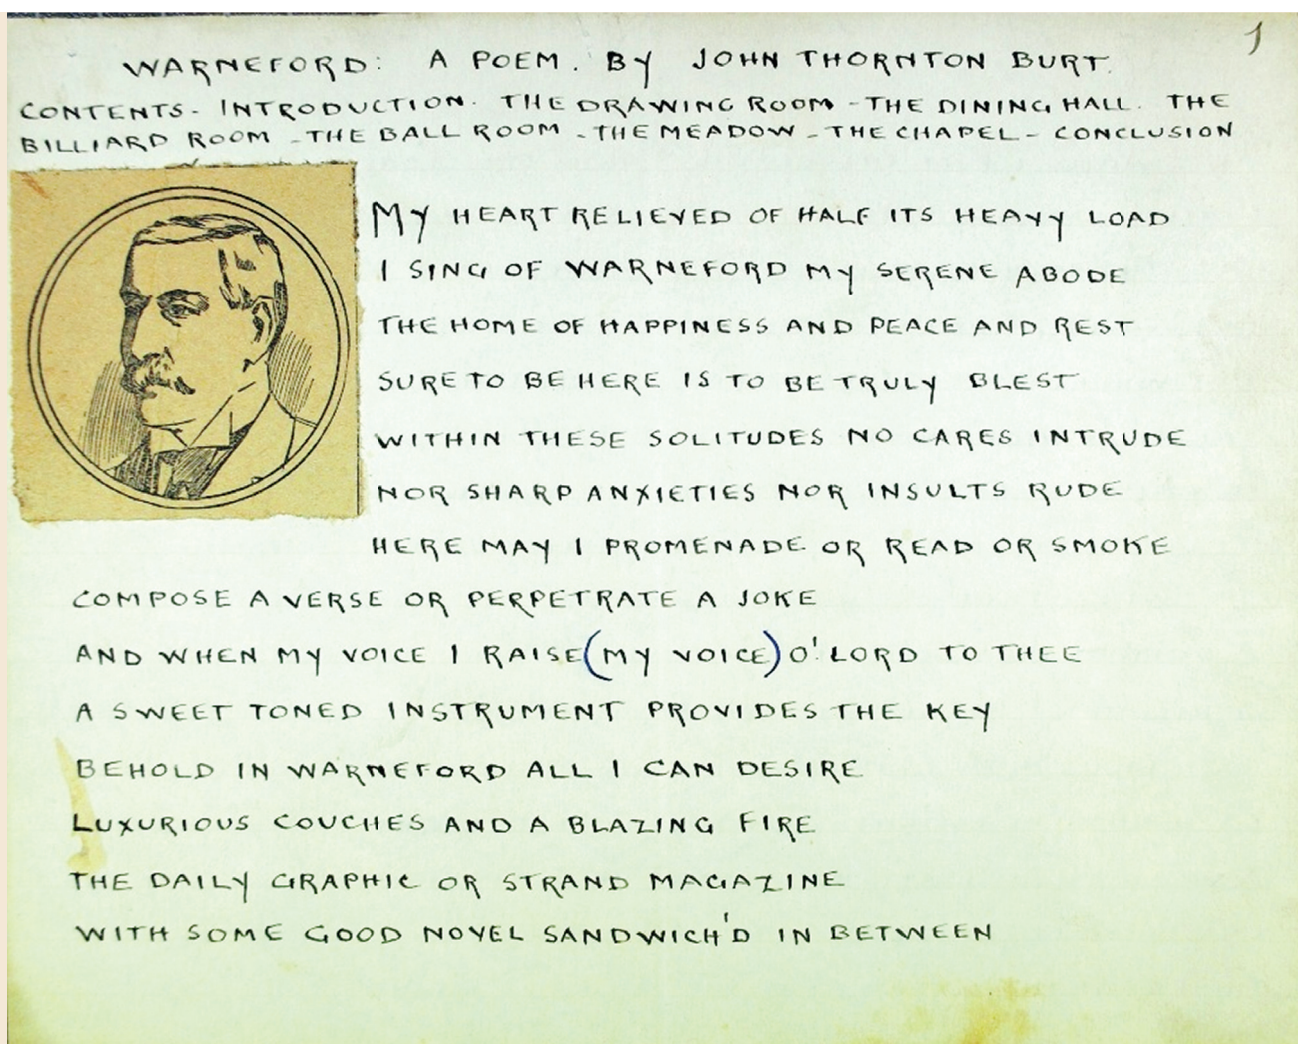 1
WARNEFORD: A POEM. BY JOHN THORNTON BURT.
CONTENTS- INTRODUCTION. THE DRAWING ROOM -THE DINING HALL. THE
BILLIARD ROOM -THE BALL ROOM -THE MEADOW -THE CHAPEL- CONCLUSION
MY HEART RELIEVED OF HALF ITS HEAVY LOAD
I SING OF WARNEFORD MY SERENE ABODE
THE HOME OF HAPPINESS AND PEACE AND REST
SURE TO BE HERE IS TO BE TRULY BLEST
WITHIN THESE SOLITUDES NO CARES INTRUDE
NOR SHARP ANXIETIES NOR INSULTS RUDE
HERE MAY I PROMENADE OR READ OR SMOKE
COMPOSE A VERSE OR PERPETRATE A JOKE
AND WHEN MY VOICE I RAISE (MY VOICE) O'! LORD TO THEE
A SWEET TONED INSTRUMENT PROVIDES THE KEY
BEHOLD IN WARNEFORD ALL I CAN DESIRE
LUXURIOUS COUCHES AND A BLAZING FIRE
THE DAILY GRAPHIC OR STRAND MAGAZINE
WITH SOME GOOD NOVEL SANDWICH'D IN BETWEEN